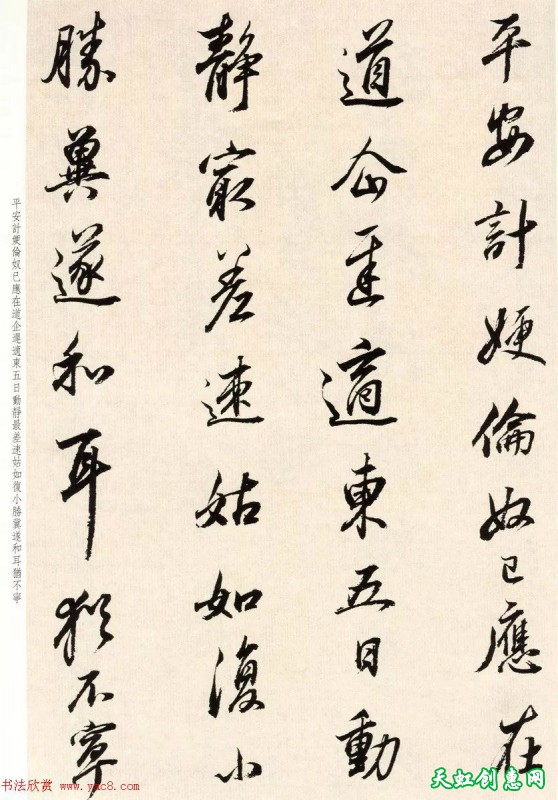 平安計㛐倫奴已應在
道企遲適東五日動
靜最差速姑如復小
勝冀遂和耳猶不寧
平安計㛐倫奴已應在道企遲適東五日動靜最差速姑如復小勝冀遂和耳猶不寧
书法欣赏 www.yac8.com
天虹创惠网